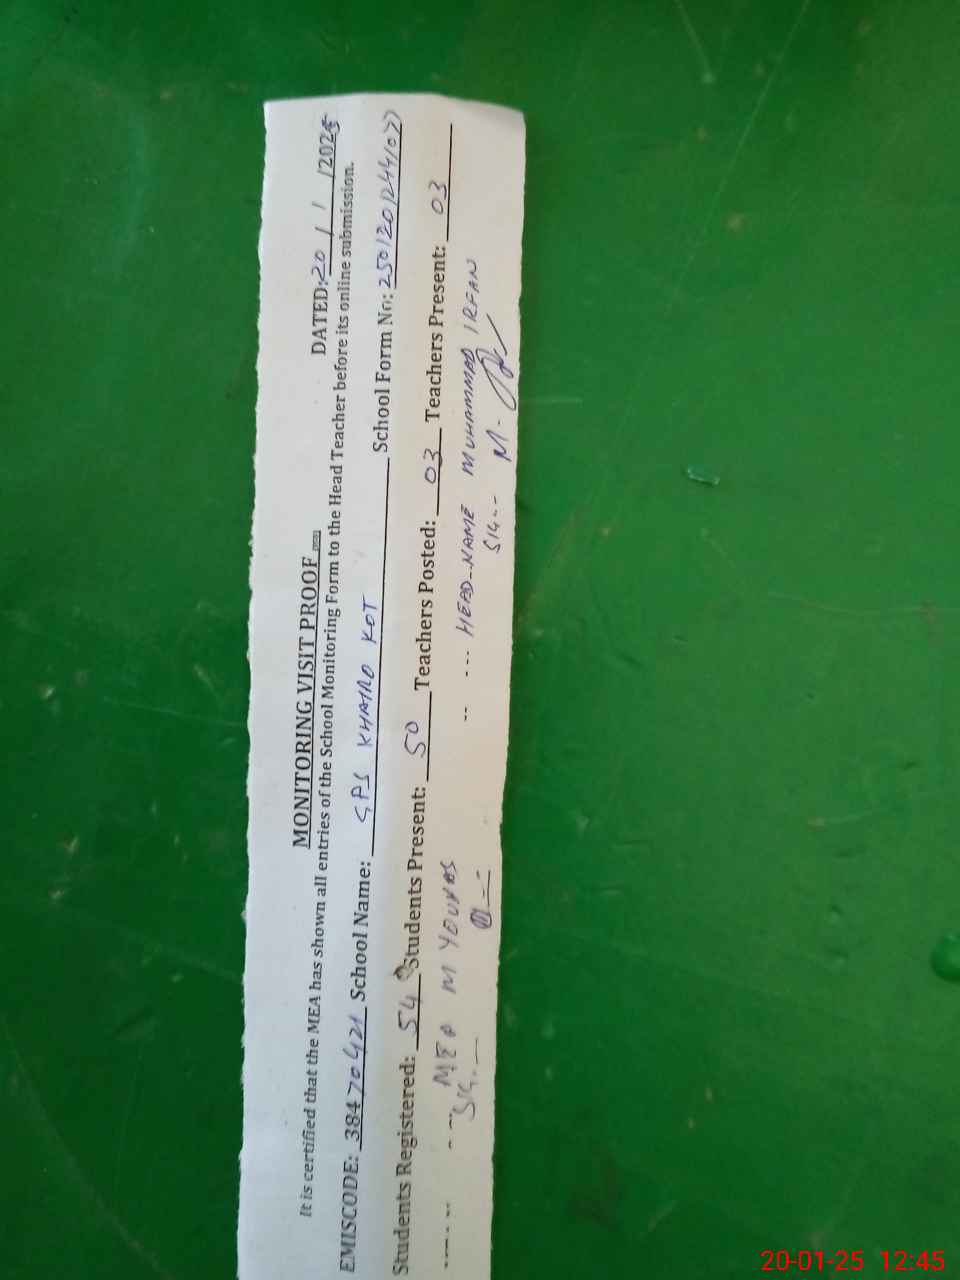 MONITORING VISIT PROOF
DATED: 20 / 1 /2025
It is certified that the MEA has shown all entries of the School Monitoring Form to the Head Teacher before its online submission.
EMISCODE: 38470421 School Name: GPS KHAIRO KOT School Form No:
Students Registered: 54 Students Present: 50 Teachers Posted: 03 Teachers Present: 03
MEA M YOUNAS -- --- HEAD-NAME MUHAMMAD IRFAN
SIG.-- SIG.-- M.
20-01-25 12:45